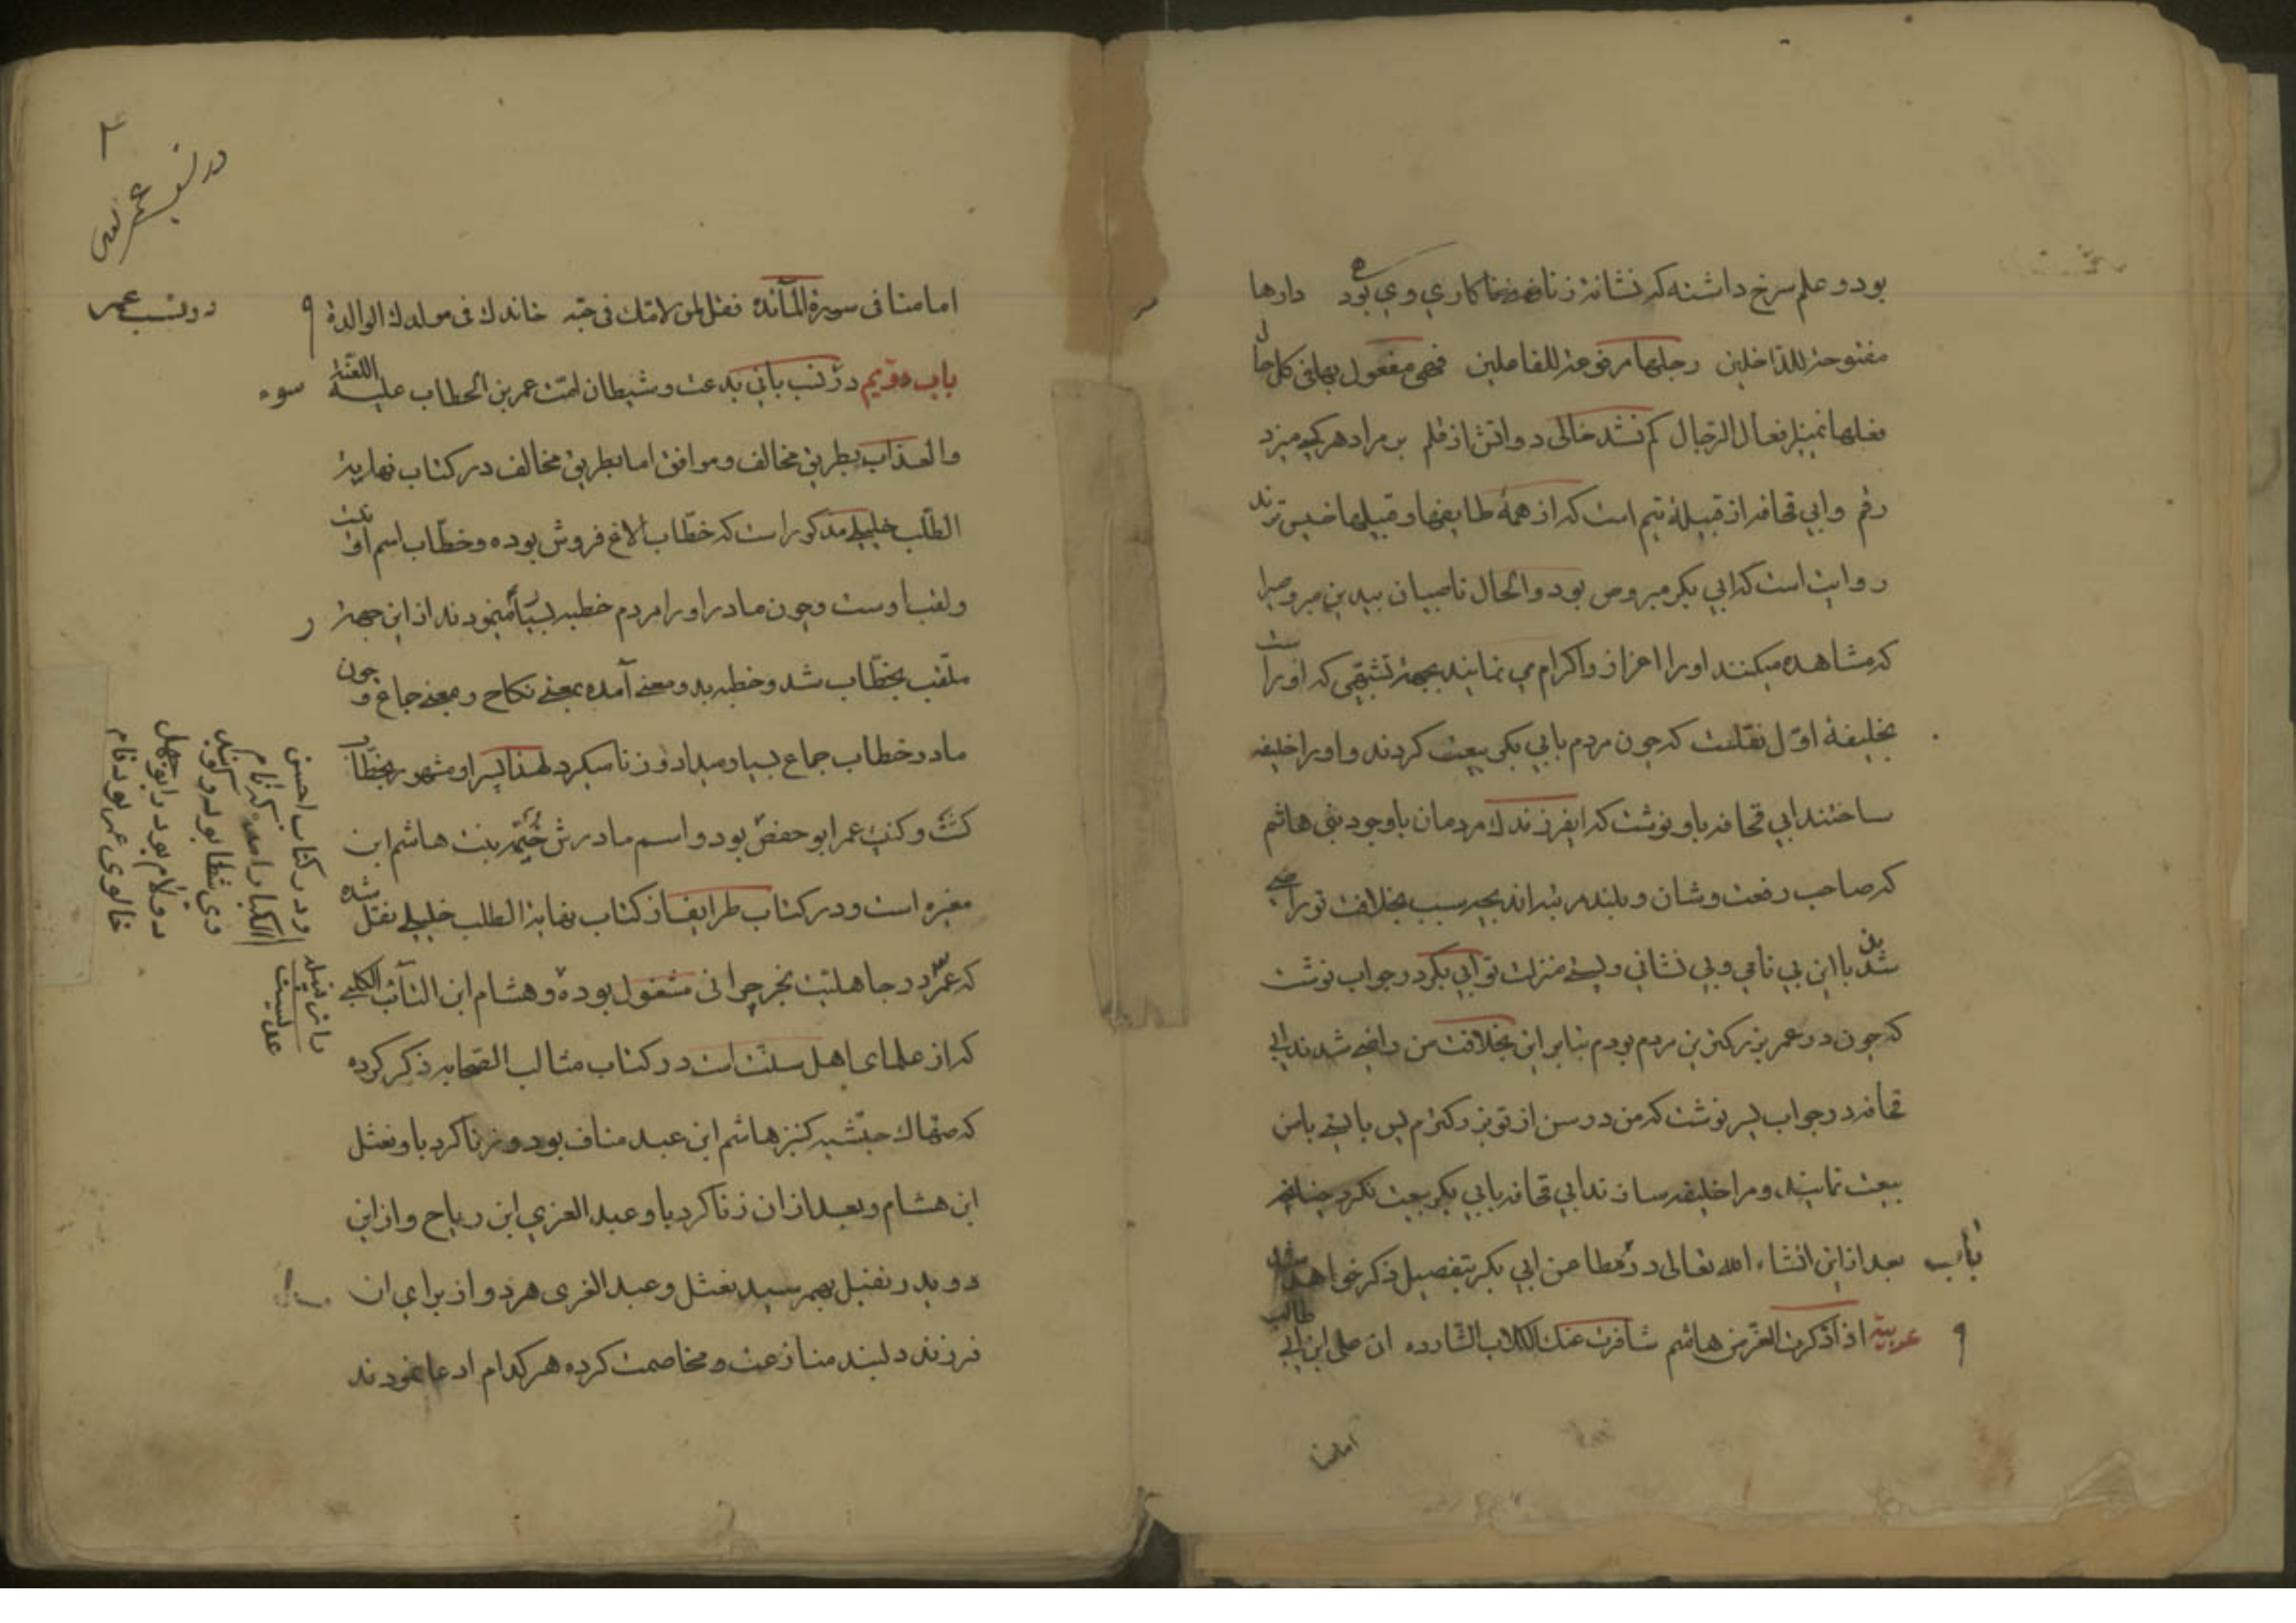 بود و علم سرخ داشته که نشانه زنا کاری وی بود دارها
مفتوحة للداخلین رجلها مرفوعة للفاعلین فهی مفعول بها فی کل حال
فعلها تمییز فعال الرجال کم نشد خالی دواتش از قلم بر مراد هر کسی میزد
رقم و ابی قحافه از قبیلهٔ تیم است که از همهٔ طایفها و قبیلها خسیس ترند
روایت است که ابی بکر مبروص بود و الحال ناصبیان
که مشاهده میکنند او را اعزاز و اکرام می نمایند بجهة که او را
بخلیفهٔ اول نقلست که چون مردم بابی بکر بیعت کردند و او را خلیفه
ساختند ابی قحافه باو نوشت که ایفرزندک مردمان باوجود بنی هاشم
که صاحب رفعت و شان و بلند مرتبه اند بچه سبب بخلافت تو راضی
شدند با این بی نامی و بی نشانی و پستی منزلت تو ابی بکر در جواب نوشت
که چون در عمر بزرکترین مردم بودم بنابر این بخلافت من راضی شدند ابی
قحافه در جواب پسر نوشت که من در سن از تو بزرکترم پس بایستی بامن
بیعت نمایند و مرا خلیفه سازند ابی قحافه بابی بکر بیعت نکرد چنانچه
باب بعد از این انشاء الله تعالی در مطاعن ابی بکر بتفصیل ذکر خواهد شد
عربیة اذا ذکرت الغر من هاشم تنافرت عنک الکلاب الشارده ان علی ابن ابی طالب
امامنا
۲
در نسب عمر
در نسب عمر
امامنا فی سورة المائده فقل لمن لامک فی حبه خانتک فی مولدک الوالدة
باب دویم در نسب بانی بدعت و شیطان امت عمر بن الخطاب علیه اللعنة سوء
والعذاب بطریق مخالف و موافق اما بطریق مخالف در کتاب نهایة
الطلب خلیلی مذکور است که خطاب الاغ فروش بوده و خطاب اسم او نیست
و لقب اوست و چون مادر او را مردم خطبه بسیار مینمودند از این جهة
ملقب بخطاب شد و خطبه بدو معنی آمده بمعنی نکاح و بمعنی جماع و چون
مادر خطاب جماع بسیار میداد و زنا میکرد لهذا پسر او مشهور بخطاب
کشت و کنیت عمر ابو حفص بود و اسم مادرش حنتمه بنت هاشم ابن
مغیره است و در کتاب طرایف از کتاب نهایة الطلب خلیلی نقل شده
که عمر در جاهلیت بخر چرانی مشغول بوده و هشام ابن السائب الکلبی
که از علمای اهل سنت است در کتاب مثالب الصحابه ذکر کرده
که صهاک حبشیه کنیز هاشم ابن عبد مناف بود و زنا کرد باو نفیل
ابن هشام و بعد از ان زنا کرد باو عبد العزی ابن ریاح و از این
دو پدر نفیل بهم رسید نفیل و عبد العزی هر دو از برای ان
فرزند دلبند منازعت و مخاصمت کرده هر کدام ادعا نمودند
و در کتاب احسن
الکبار